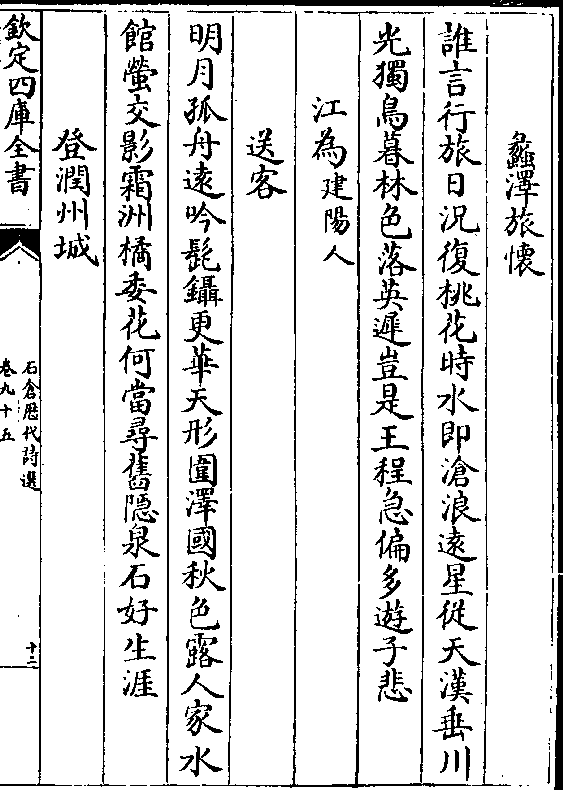 蠡澤旅懷
誰言行旅日況復桃花時水即滄浪遠星從天漢垂川
光獨鳥暮林色落英遲豈是王程急偏多遊子悲
江為建陽人
送客
明月孤舟遠吟髭鑷更華天形圍澤國秋色露人家水
館螢交影霜洲橘委花何當尋舊隱泉石好生涯
登潤州城
欽定四庫全書
石倉歴代詩選
卷九十五
十三